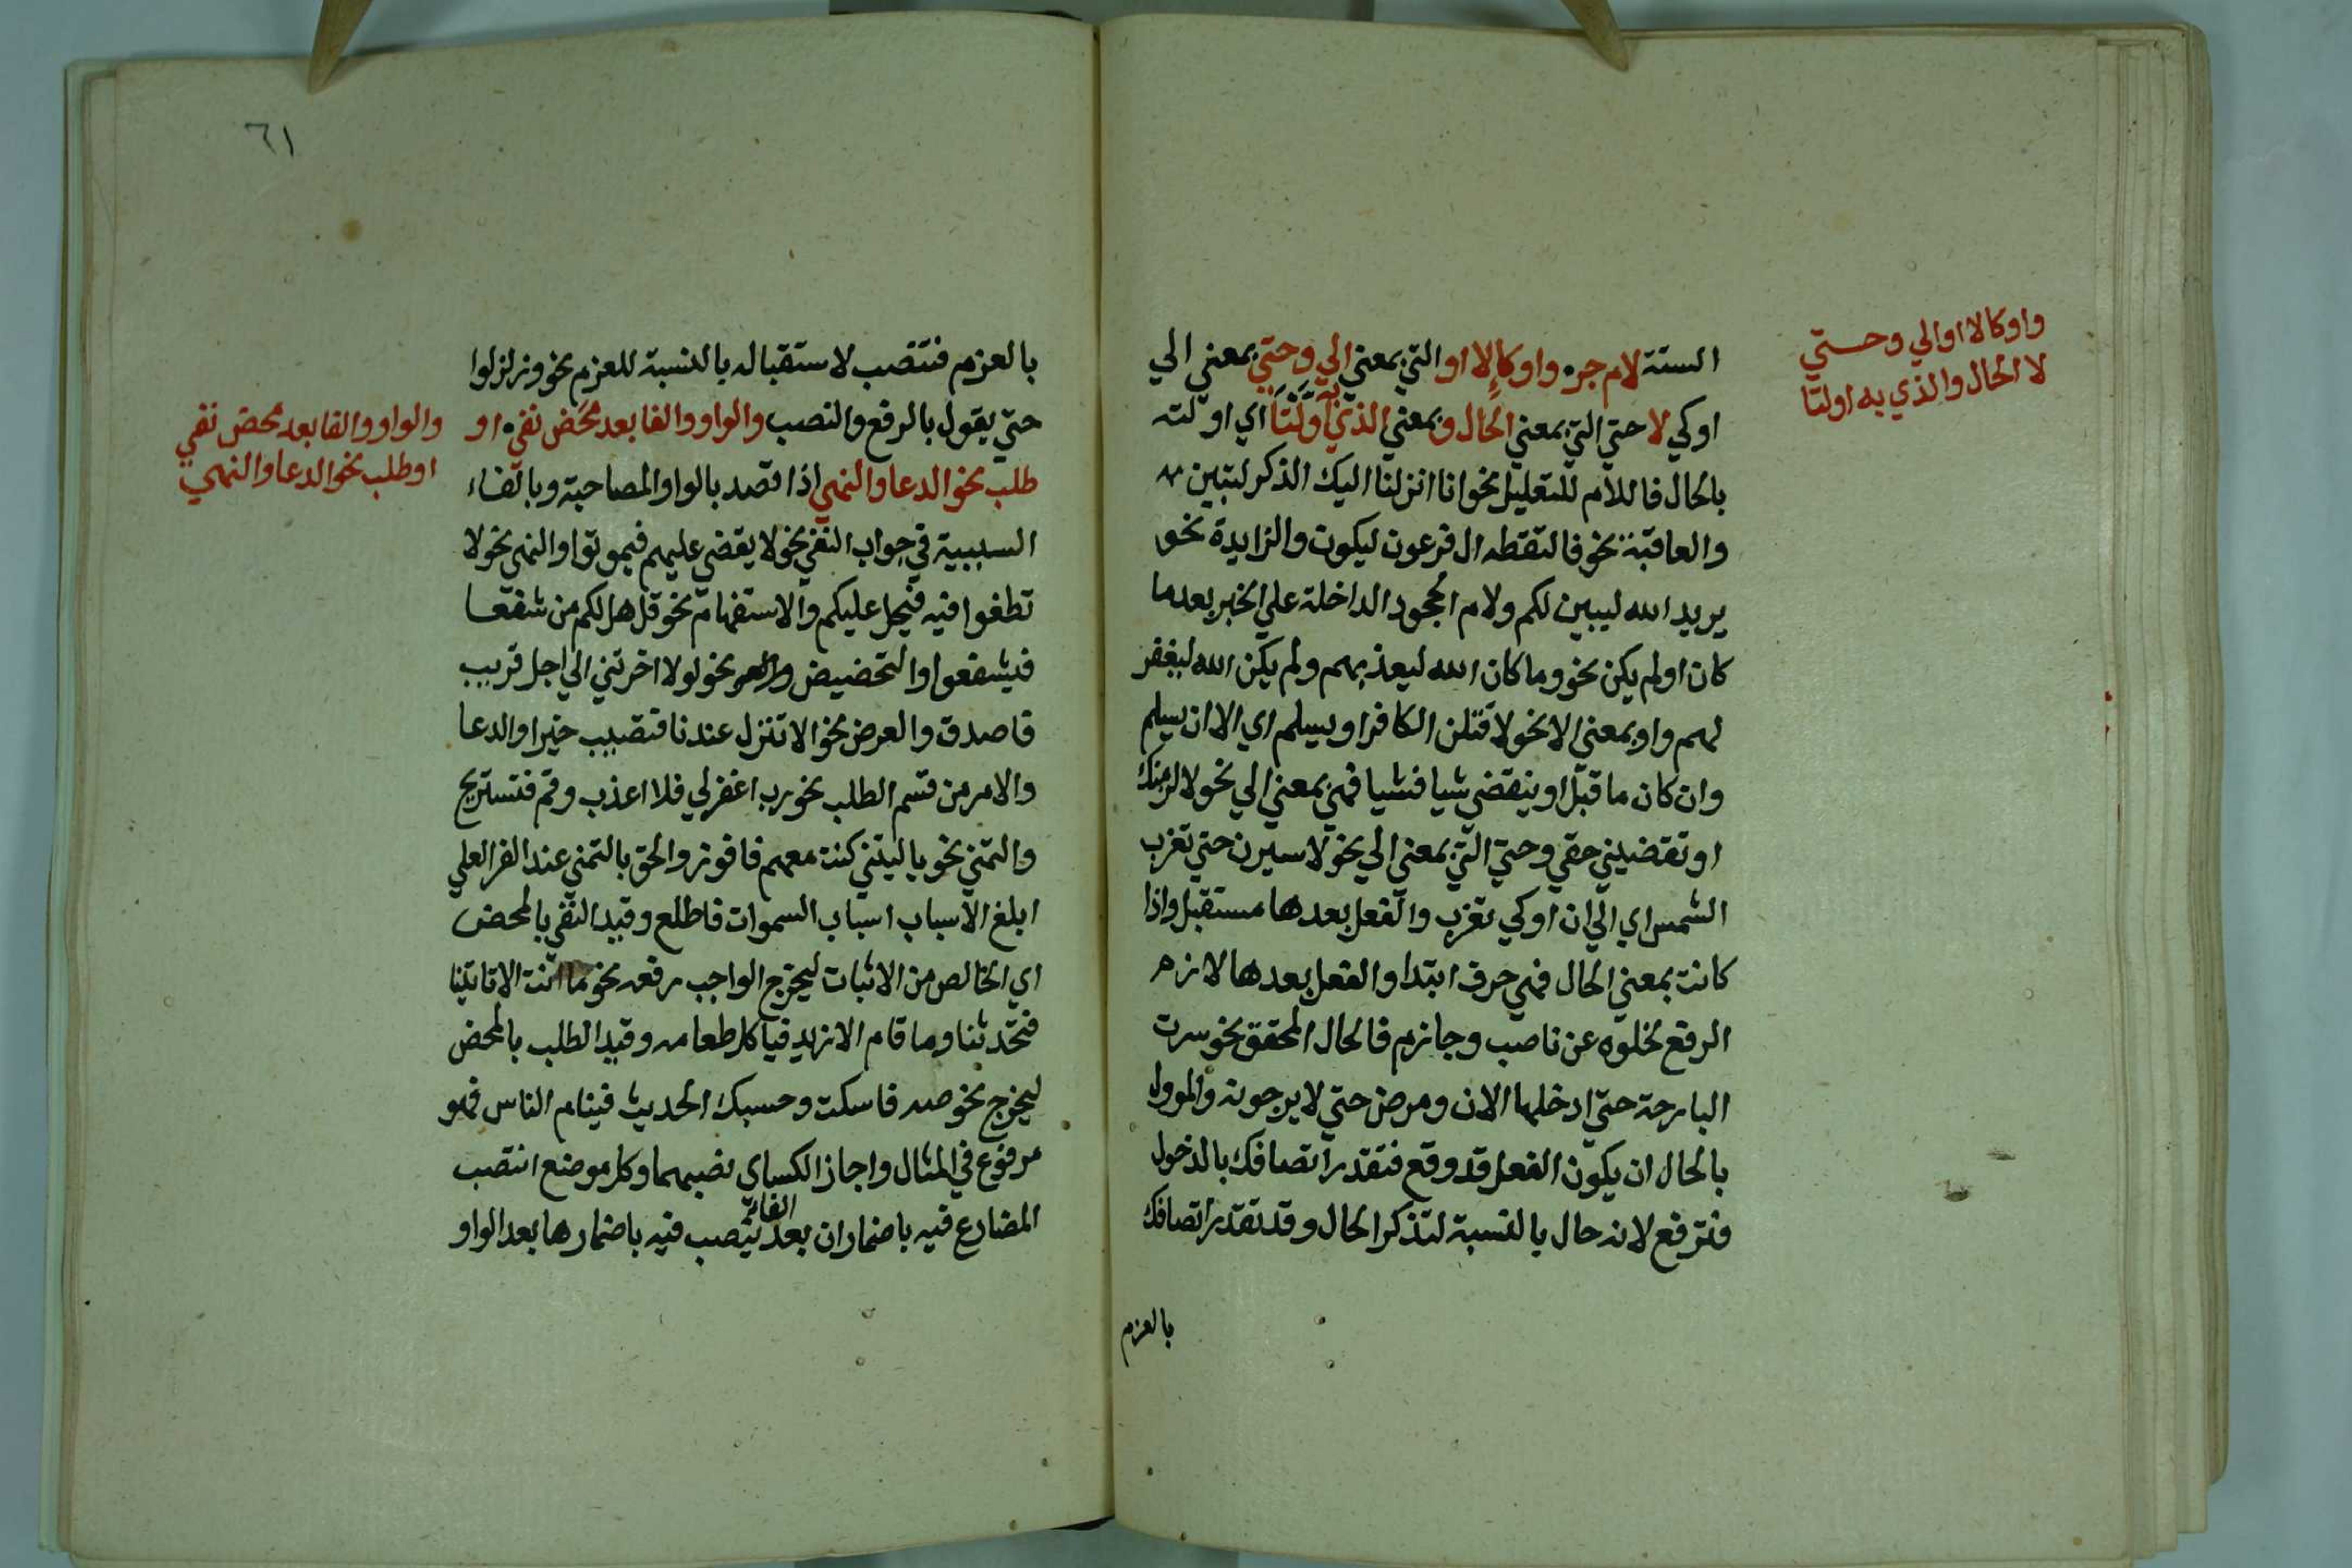 واو كالا او الي وحتي
لا الحال والذي به اولتا
الستة لام جره واو كالا او التي بمعني الي وحتي بمعني الي
او كي لا حتي التي بمعني الحال وبمعني الذي به اولتا اي اولته
بالحال فاللام للتعليل نحو انا انزلنا اليك الذكر لتبين
والعاقبة نحو فالتقطه ال فرعون ليكون والزايدة نحو
يريد الله ليبين لكم ولام الجحود الداخلة علي الخبر بعد ما
كان اولم يكن نحو وما كان الله ليعذبهم ولم يكن الله ليغفر
لهم واو بمعني الا نحو لاقتلن الكافر او يسلم اي الا ان يسلم
وان كان ما قبل او ينقضي شيا فشيا فهي بمعني الي نحو لالزمنك
او تقضيني حقي وحتي التي بمعني الي نحو لاسيرن حتي تغرب
الشمس اي الي ان او كي تغرب والفعل بعدها مستقبل واذا
كانت بمعني الحال فهي حرف ابتدا والفعل بعدها لازم
الرفع لخلوه عن ناصب وجازم فالحال المحقق نحو سرت
البارحة حتي ادخلها الان ومرض حتي لا يرجونه والموول
بالحال ان يكون الفعل قد وقع فتقدر اتصافك بالدخول
فترفع لانه حال بالنسبة لتذكر الحال وقد تقدر اتصافك
بالعزم
٦١
بالعزم فتنصب لاستقباله بالنسبة للعزم نحو وزلزلوا
حتي يقول بالرفع والنصب والواو والفا بعد محض نفي او
طلب نحو الدعا والنهي اذا قصد بالواو المصاحبة وبالفاء
والواو والفا بعد محض نفي
او طلب نحو الدعا والنهي
السببية في جواب النفي نحو لا يقضي عليهم فيموتوا والنهي نحو لا
تطغوا فيه فيحل عليكم والاستفهام نحو قل هل لكم من شفعا
فيشفعوا والتحضيض نحو لولا اخرتني الي اجل قريب
فاصدق والعرض نحو الا تنزل عندنا فتصيب خيرا والدعا
والامر من قسم الطلب نحو رب اغفرلي فلا اعذب وقم فتستريح
والتمني نحو يا ليتني كنت معهم فافوز والحق بالتمني عند الفرا لعلي
ابلغ الاسباب اسباب السموات فاطلع وقيد النفي بالمحض
اي الخالص من الاثبات ليخرج الواجب رفعه نحو ما انت الا تاتينا
فتحدثنا وما قام الا زيد فياكل طعامه وقيد الطلب بالمحض
ليخرج نحو صه فاسكت وحسبك الحديث فينام الناس فهو
مرفوع في المثال واجاز الكساي نصبهما وكل موضع انتصب
المضارع فيه باضمار ان بعد الفا ينصب فيه باضمارها بعد الواو